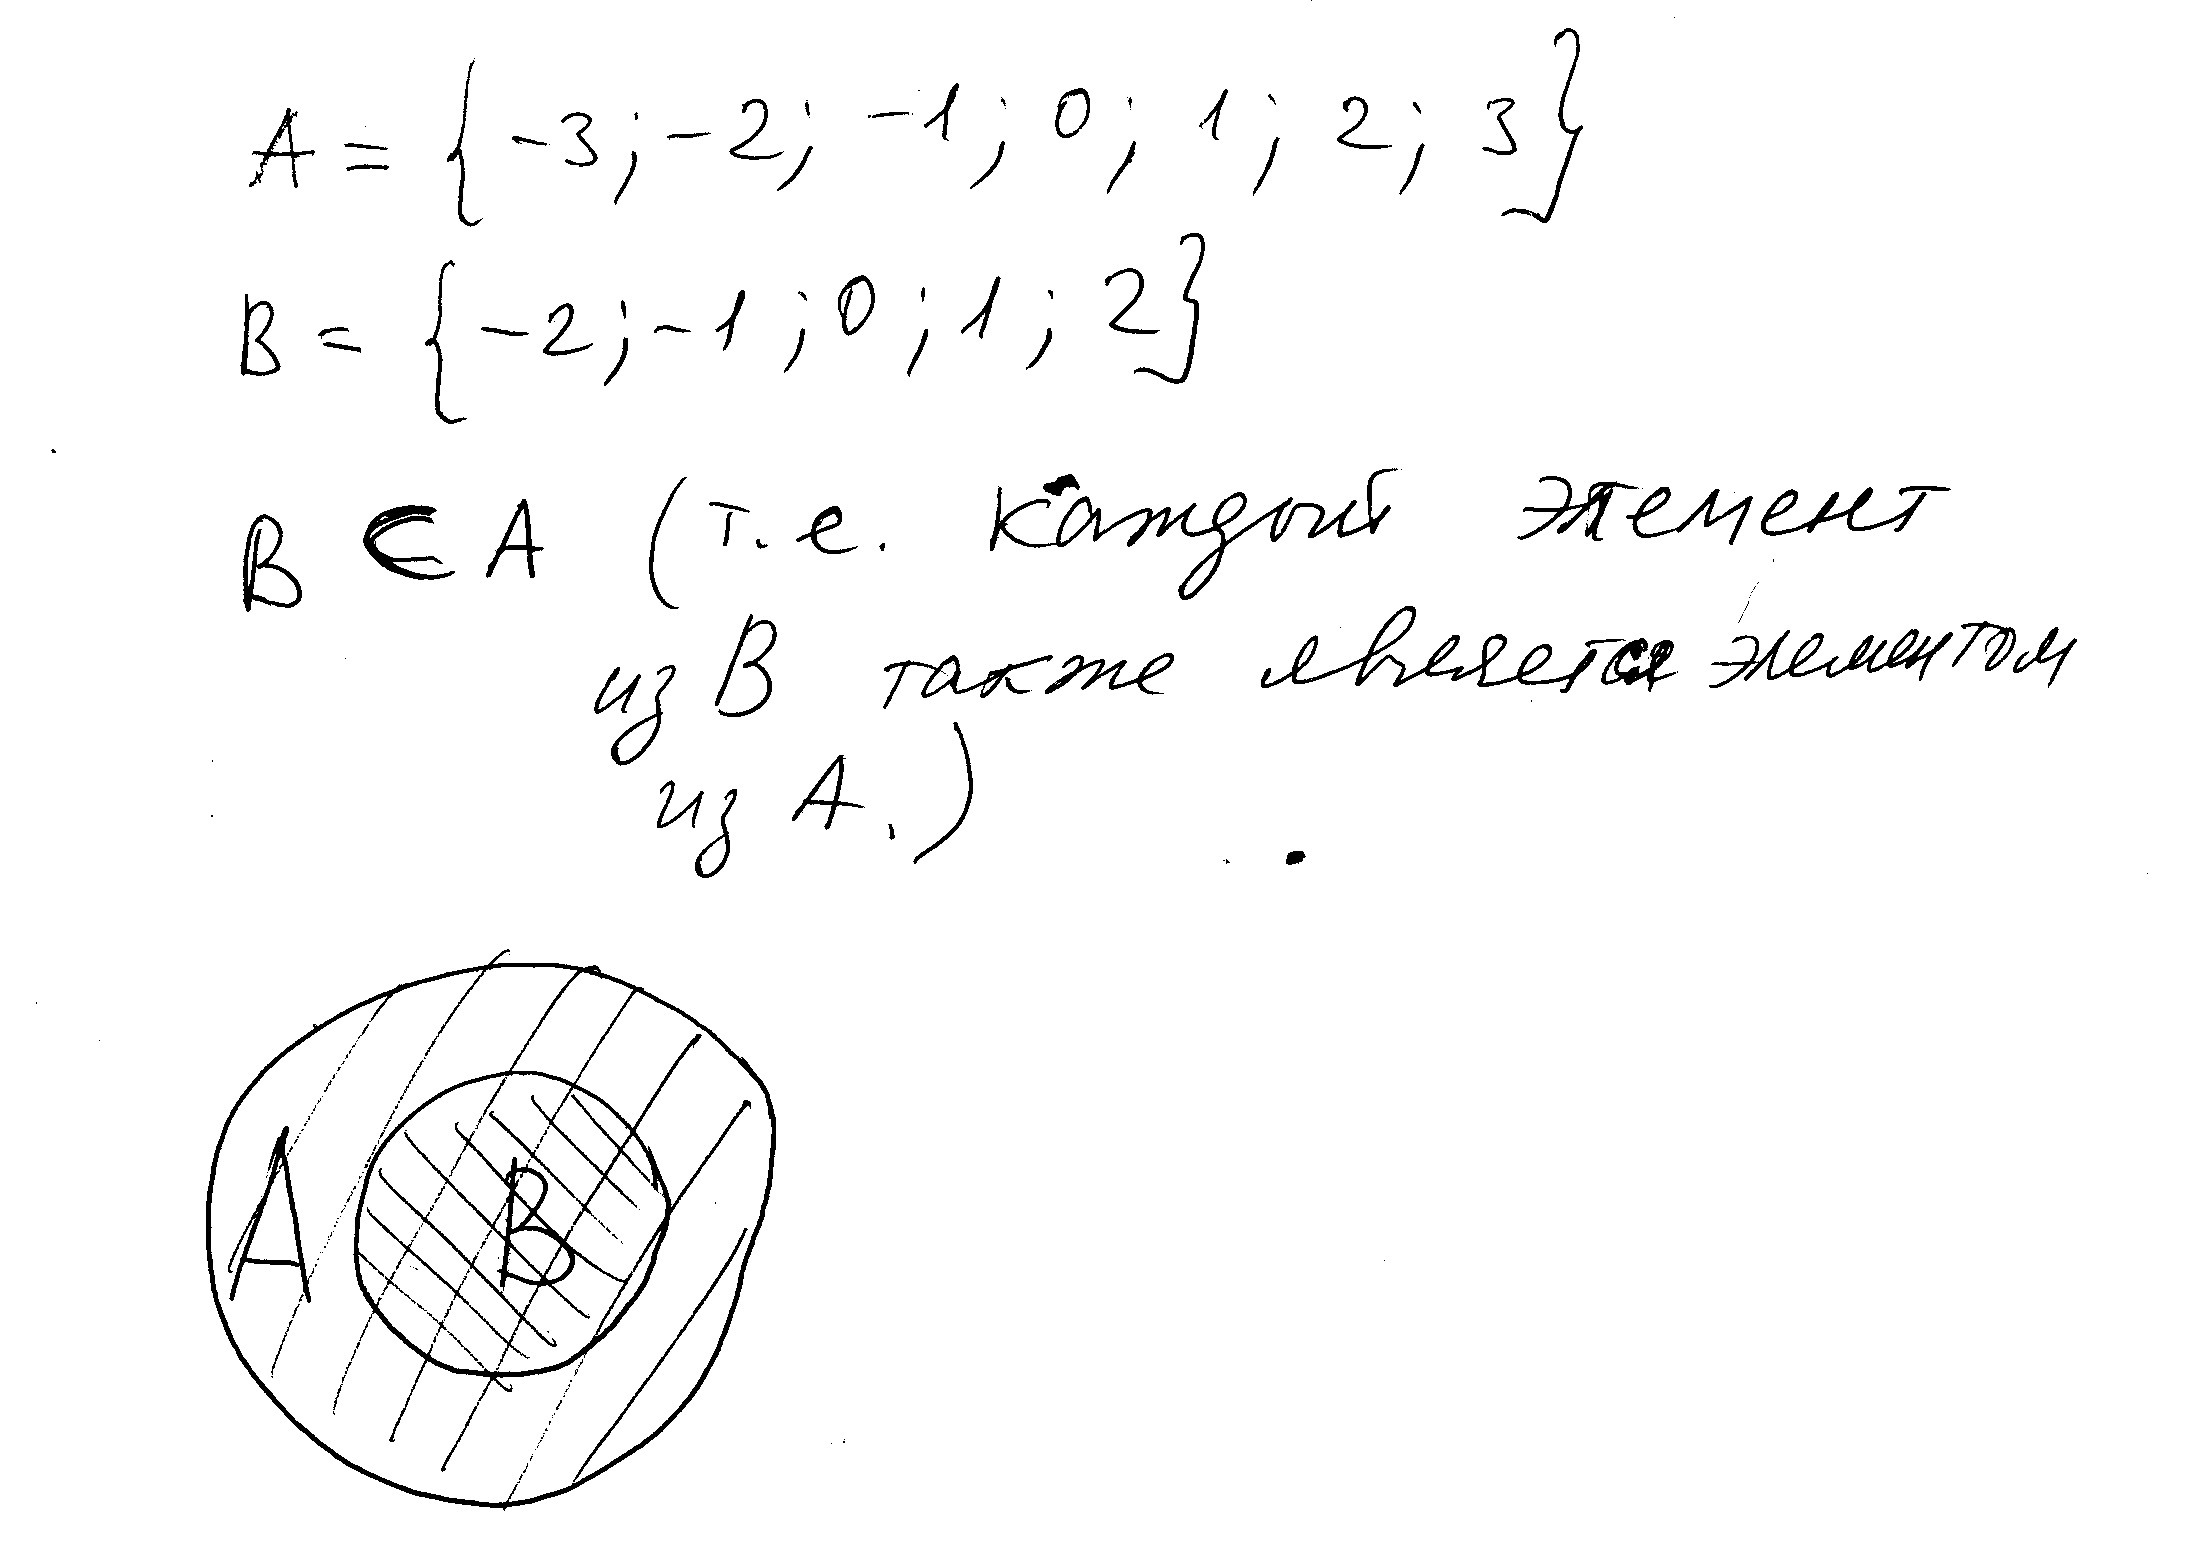 A = {-3; -2; -1; 0; 1; 2; 3}
B = {-2; -1; 0; 1; 2}
B ⊂ A (т.е. каждый элемент
из B также является элементом
из A.)
A
B